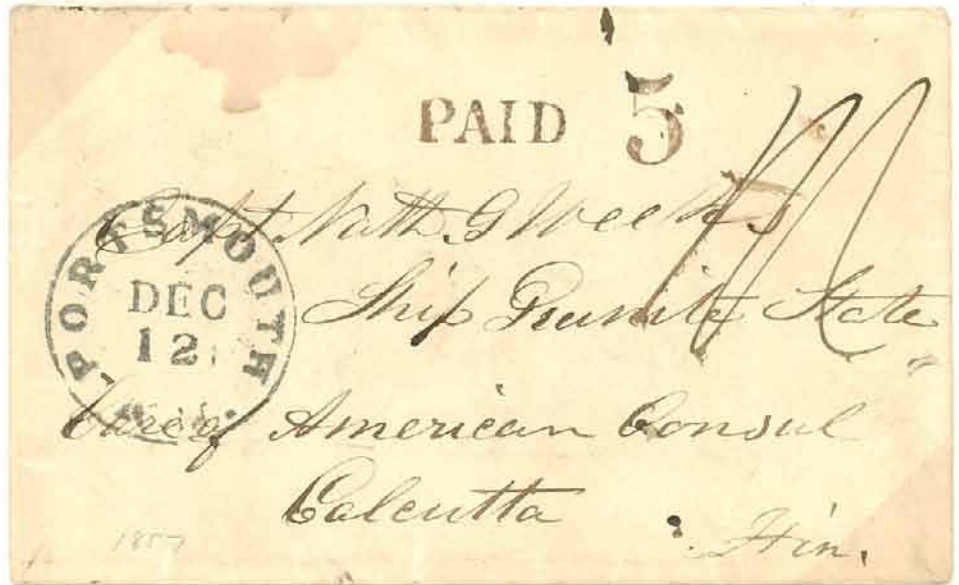 PAID 5
PORTSMOUTH
DEC
12
Capt. Nath. G Weeks
Ship Granite State
Care of American Consul
Calcutta
Hin.
1857